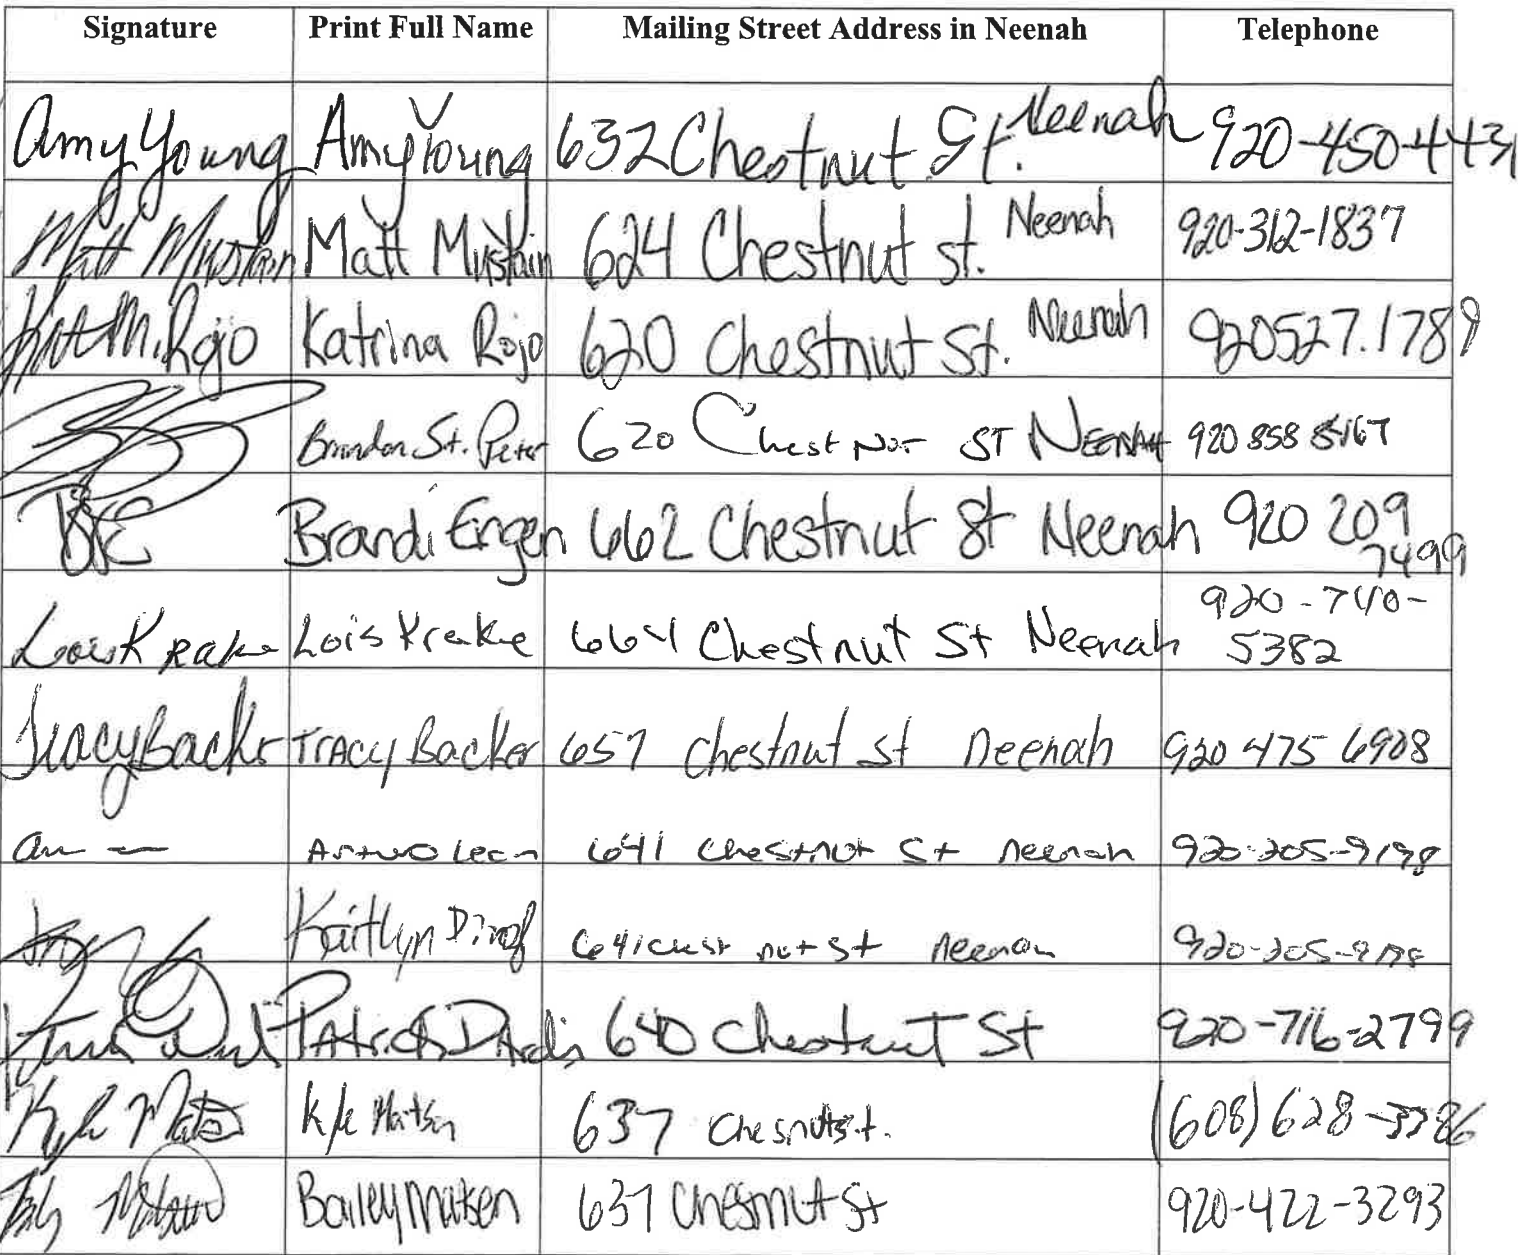 Signature Print Full Name Mailing Street Address in Neenah Telephone
Amy Young Amy Young 632 Chestnut St. Neenah 920-450-4431
Matt Mustain Matt Mustain 624 Chestnut st. Neenah 920-312-1837
Kat M. Rojo Katrina Rojo 620 Chestnut St. Neenah 920527.1789
Brandon St. Peter 620 Chestnut ST NEENAH 920 858 8167
Brandi Engen 662 Chestnut St Neenah 920 209
7499
920-740-
Lois Krake Lois Krake 664 Chestnut St Neenah 5382
Tracy Backer TRACY Backer 657 Chestnut st neenah 920 475 6908
Arturo Leon 641 Chestnut St neenah 920-205-9198
Kaitlyn 641 chest nut St neenah 920-205-9198
Patrick Dardis 640 Chestnut St 920-716-2799
Kyle Matsen Kyle Matsen 637 Chesnut st. (608) 628-3386
Bailey Matsen 637 Chesnut St 920-422-3293